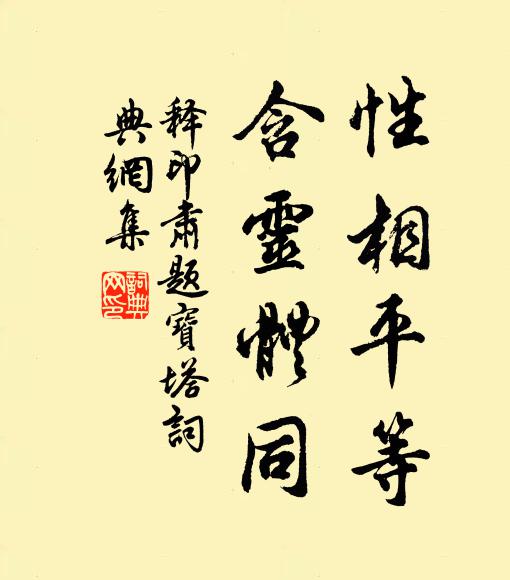 性相平等
含靈體同
釋印肅題寶塔詞
典網集
詞典網印